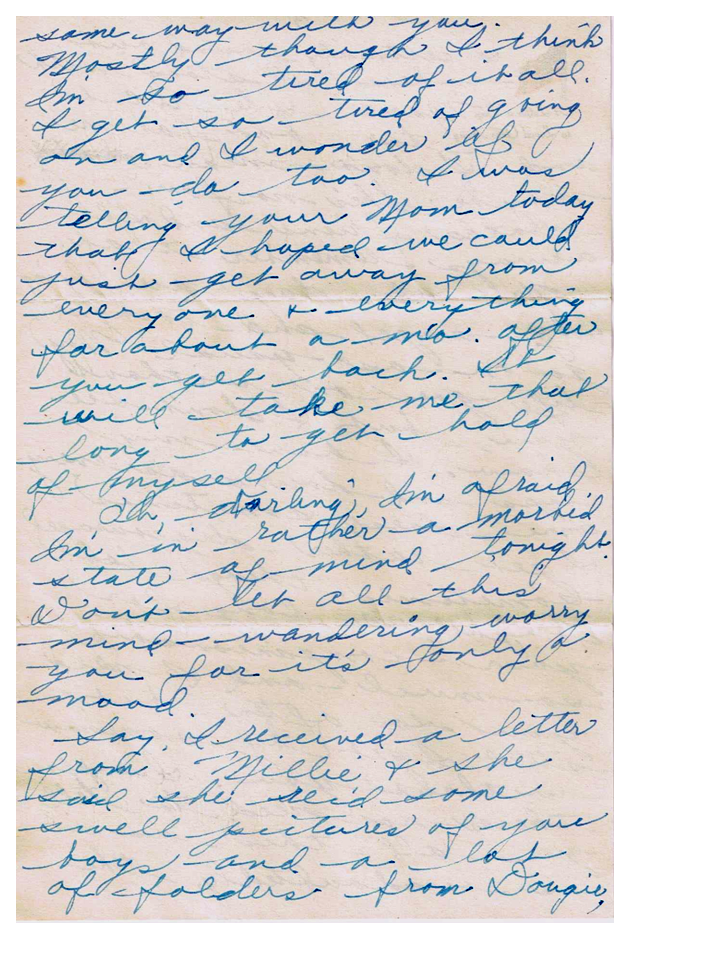 same way with you.
Mostly though I think
I'm so tired of it all.
I get so tired of going
on and I wonder if
you do too. I was
telling your Mom today
that I hoped we could
just get away from
everyone & everything
for about a mo. after
you get back. It
will take me that
long to get hold
of myself
Oh, darling, I'm afraid
I'm in rather a morbid
state of mind tonight.
Don't let all this
mind-wandering worry
you for it's only a
mood.
Say, I received a letter
from Millie & she
said she rec'd some
swell pictures of you
boys and a lot
of folders from Dougie,